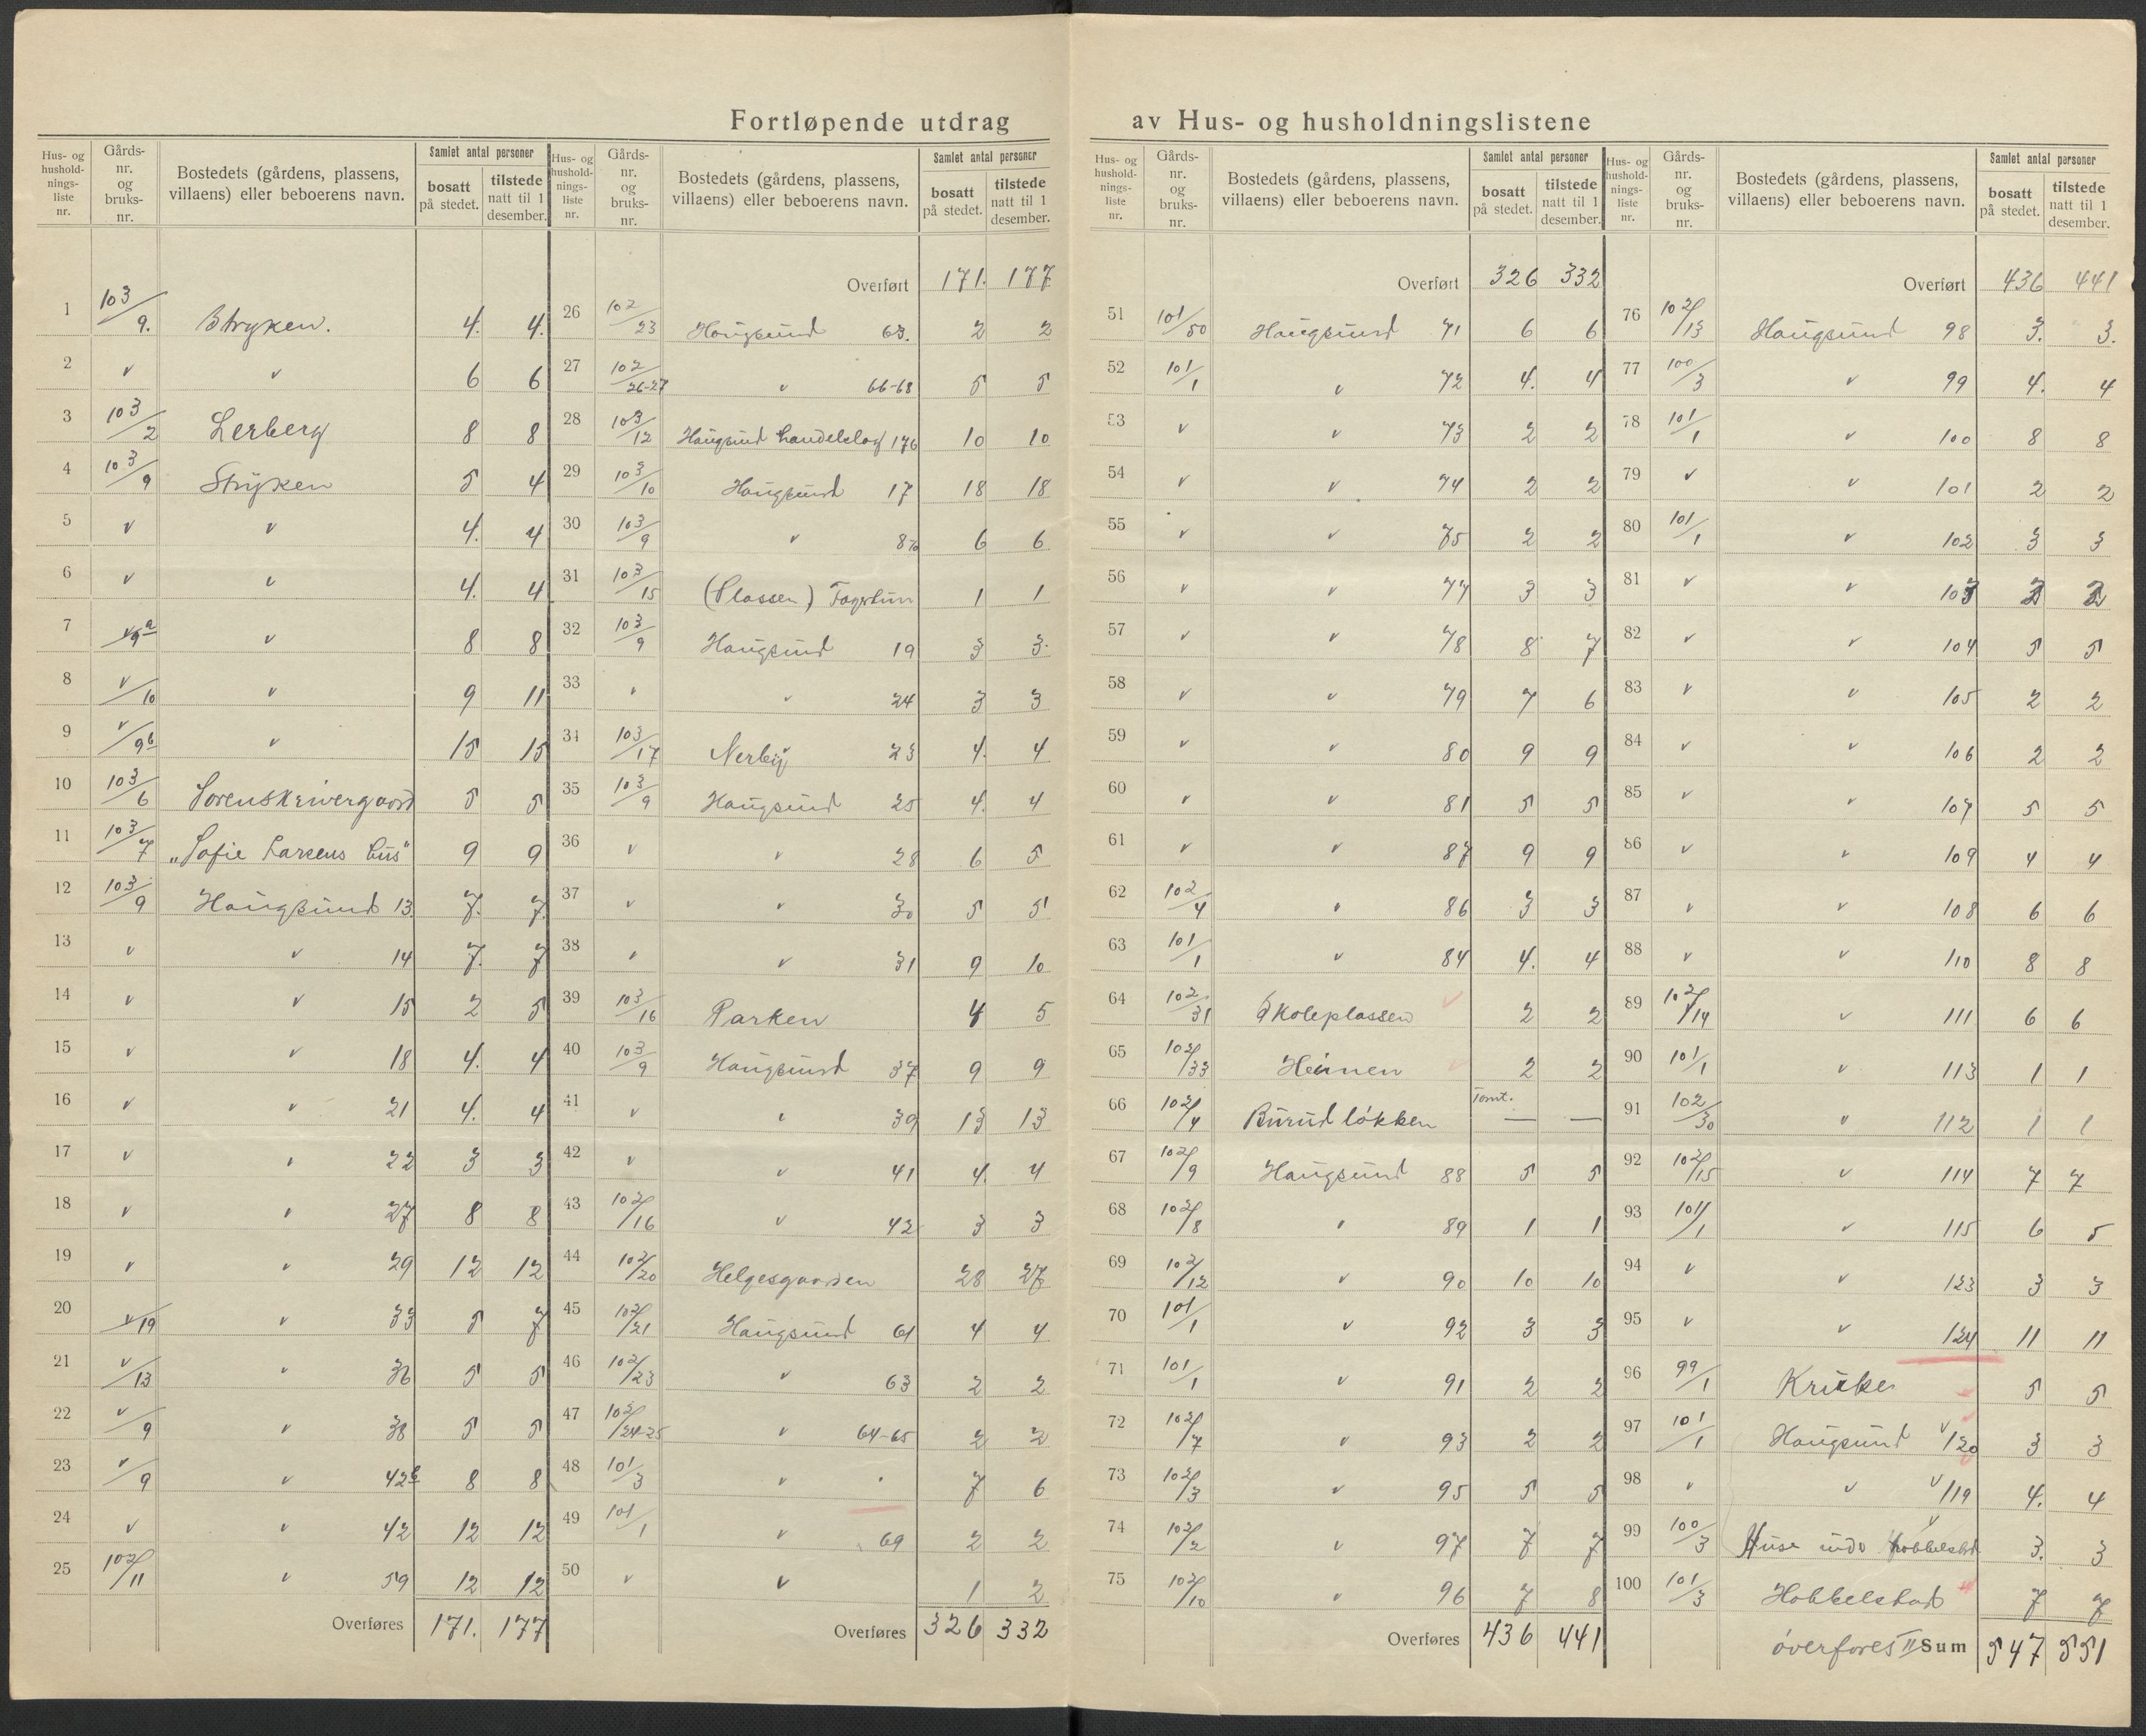 Fortløpende utdrag av Hus- og husholdningslistene
Hus- og hushold-nings-liste nr. | Gårds-nr. og bruks-nr. | Bostedets (gårdens, plassens, villaens) eller beboerens navn. | Samlet antal personer | bosatt på stedet. | tilstede natt til 1 desember.
1 103/9. Stryken. 4. 4.
2 v v 6 6
3 103/2 Lerberg 8 8
4 103/9 Stryken 5 4
5 v v 4. 4
6 v v 4. 4
7 v/9a v 8 8
8 v/10 v 9 11
9 v/9b v 15 15
10 103/6 Sorenskrivergaard 5 5
11 103/7 „Sofie Larsens hus" 9 9
12 103/9 Hougsund 13. 7. 7.
13 v v 14 7. 7
14 v v 15 2 5
15 v v 18 4. 4
16 v v 21 4. 4
17 v v 22 3 3
18 v v 27 8 8
19 v v 29 12 12
20 v/19 v 33 5 7
21 v/13 v 36 5 5
22 v/9 v 38 5 5
23 v/9 v 42b 8 8
24 v v 42 12 12
25 102/11 v 59 12 12
Overføres 171. 177
Hus- og hushold-nings-liste nr. | Gårds-nr. og bruks-nr. | Bostedets (gårdens, plassens, villaens) eller beboerens navn. | Samlet antal personer | bosatt på stedet. | tilstede natt til 1 desember.
Overført 171. 177
26 102/23 Hougsund 63. 2 2
27 102/26-27 v 66-68 5 5
28 103/12 Haugsund handelslag 176 10 10
29 103/10 Hougsund 17 18 18
30 103/9 v 6 6
31 103/15 (Plassen) Fagerlun 1 1
32 103/9 Hougsund 19 3 3.
33 v v 24 3 3
34 103/17 Nerby 23 4. 4
35 103/9 Hougsund 25 4. 4
36 v v 28 6 5
37 v v 30 5 5
38 v v 31 9 10
39 103/16 Parken 4 5
40 103/9 Hougsund 37 9 9
41 v v 39 13 13
42 v v 41 4. 4
43 102/16 v 42 3 3
44 102/20 Helgesgaarden 28 27
45 102/21 Hougsund 61 4 4
46 102/23 v 63 2 2
47 102/24-25 v 64-65 2 2
48 101/3 v 7 6
49 101/1 v 69 2 2
50 v v 1 2
Overføres 326 332
Hus- og hushold-nings-liste nr. | Gårds-nr. og bruks-nr. | Bostedets (gårdens, plassens, villaens) eller beboerens navn. | Samlet antal personer | bosatt på stedet. | tilstede natt til 1 desember.
Overført 326 332
51 101/50 Hougsund 71 6 6
52 101/1 v 72 4. 4
53 v v 73 2 2
54 v v 74 2 2
55 v v 75 2 2
56 v v 77 3 3
57 v v 78 8 7
58 v v 79 7 6
59 v v 80 9 9
60 v v 81 5 5
61 v v 87 9 9
62 102/4 v 86 3 3
63 101/1 v 84 4. 4
64 102/31 Skoleplassen 2 2
65 102/33 Heimen 2 2
66 102/4 Burud løkken Tomt. — —
67 102/9 Hougsund 88 5 5
68 102/8 v 89 1 1
69 102/12 v 90 10 10
70 101/1 v 92 3 3
71 101/1 v 91 2 2
72 102/7 v 93 2 2
73 102/3 v 95 5 5
74 102/2 v 97 7 7
75 102/10 v 96 7 8
Overføres 436 441
Hus- og hushold-nings-liste nr. | Gårds-nr. og bruks-nr. | Bostedets (gårdens, plassens, villaens) eller beboerens navn. | Samlet antal personer | bosatt på stedet. | tilstede natt til 1 desember.
Overført 436 441
76 102/13 Hougsund 98 3. 3.
77 100/3 v 99 4. 4
78 101/1 v 100 8 8
79 v v 101 2 2
80 101/1 v 102 3 3
81 v v 103 2 2
82 v v 104 5 5
83 v v 105 2 2
84 v v 106 2 2
85 v v 107 5 5
86 v v 109 4 4
87 v v 108 6 6
88 v v 110 8 8
89 102/14 v 111 6 6
90 101/1 v 113 1 1
91 102/30 v 112 1 1
92 102/15 v 114 7 7
93 101/1 v 115 6 5
94 v v 123 3 3
95 v v 124 11 11
96 99/1 Kruke 5 5
97 101/1 Hougsund v 120 3 3
98 v v v 119 4. 4
99 100/3 Huse Hobbelstad 3. 3
100 101/3 Hobbelstad 7 7
overføres II Sum 547 551